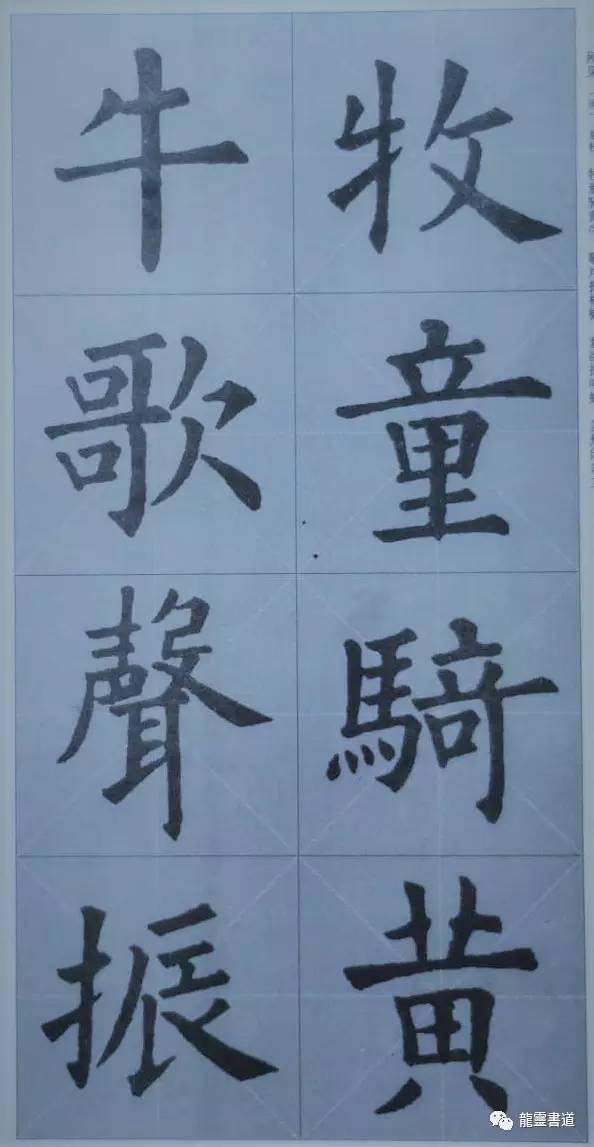 牧童騎黄
牛歌聲振
龍靈書道